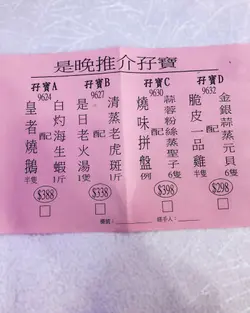 是晚推介孖寶
孖寶A
9624
皇者燒鵝半隻
配
白灼海生蝦1斤
$388
孖寶B
9627
是日老火湯1煲
配
清蒸老虎斑1斤
$338
孖寶C
9630
燒味拼盤例
配
蒜蓉粉絲蒸聖子6隻
$398
孖寶D
9632
脆皮一品雞半隻
配
金銀蒜蒸元貝6隻
$298
經手人: